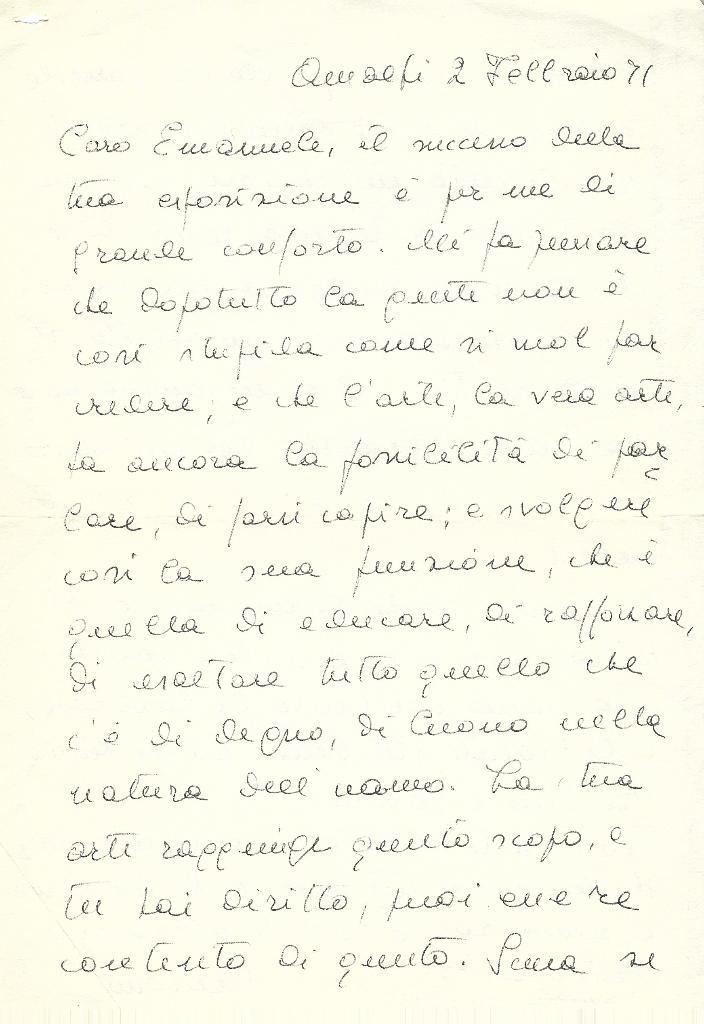 Amalfi 2 Febbraio 71
Caro Emanuele, il successo della
tua esposizione è per me di
grande conforto. Mi fa pensare
che dopotutto la gente non è
così stupida come si vuol far
credere; e che l'arte, la vera arte,
ha ancora la possibilità di par
lare, di farsi capire; e svolgere
così la sua funzione, che è
quella di educare, di rafforzare,
di esaltare tutto quello che
c'è di degno, di buono nella
natura dell'uomo. La tua
arte raggiunge questo scopo, e
tu hai diritto, puoi essere
contento di questo. Senza se